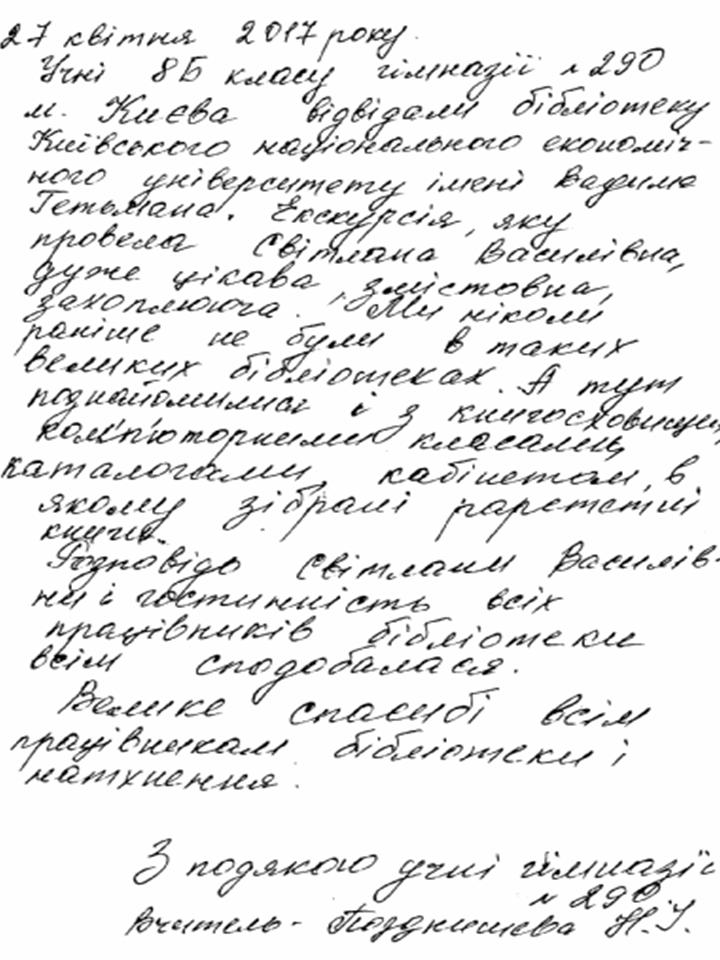 27 квітня 2017 року.
Учні 8Б класу гімназії №290
м. Києва відвідали бібліотеку
Київського національного економіч-
ного університету імені Вадима
Гетьмана. Екскурсія, яку
провела Світлана Василівна,
дуже цікава, змістовна,
захоплююча. Ми ніколи
раніше не були в таких
великих бібліотеках. А тут
познайомились і з книгосховищем,
комп'ютерними класами,
каталогами, кабінетом, в
якому зібрані раритетні
книги.
Розповідь Світлани Василів-
ни і гостинність всіх
працівників бібліотеки
всім сподобалася.
Велике спасибі всім
працівникам бібліотеки і
натхнення.
З подякою учні гімназії
№ 290.
Вчитель - Позднишева Н.І.